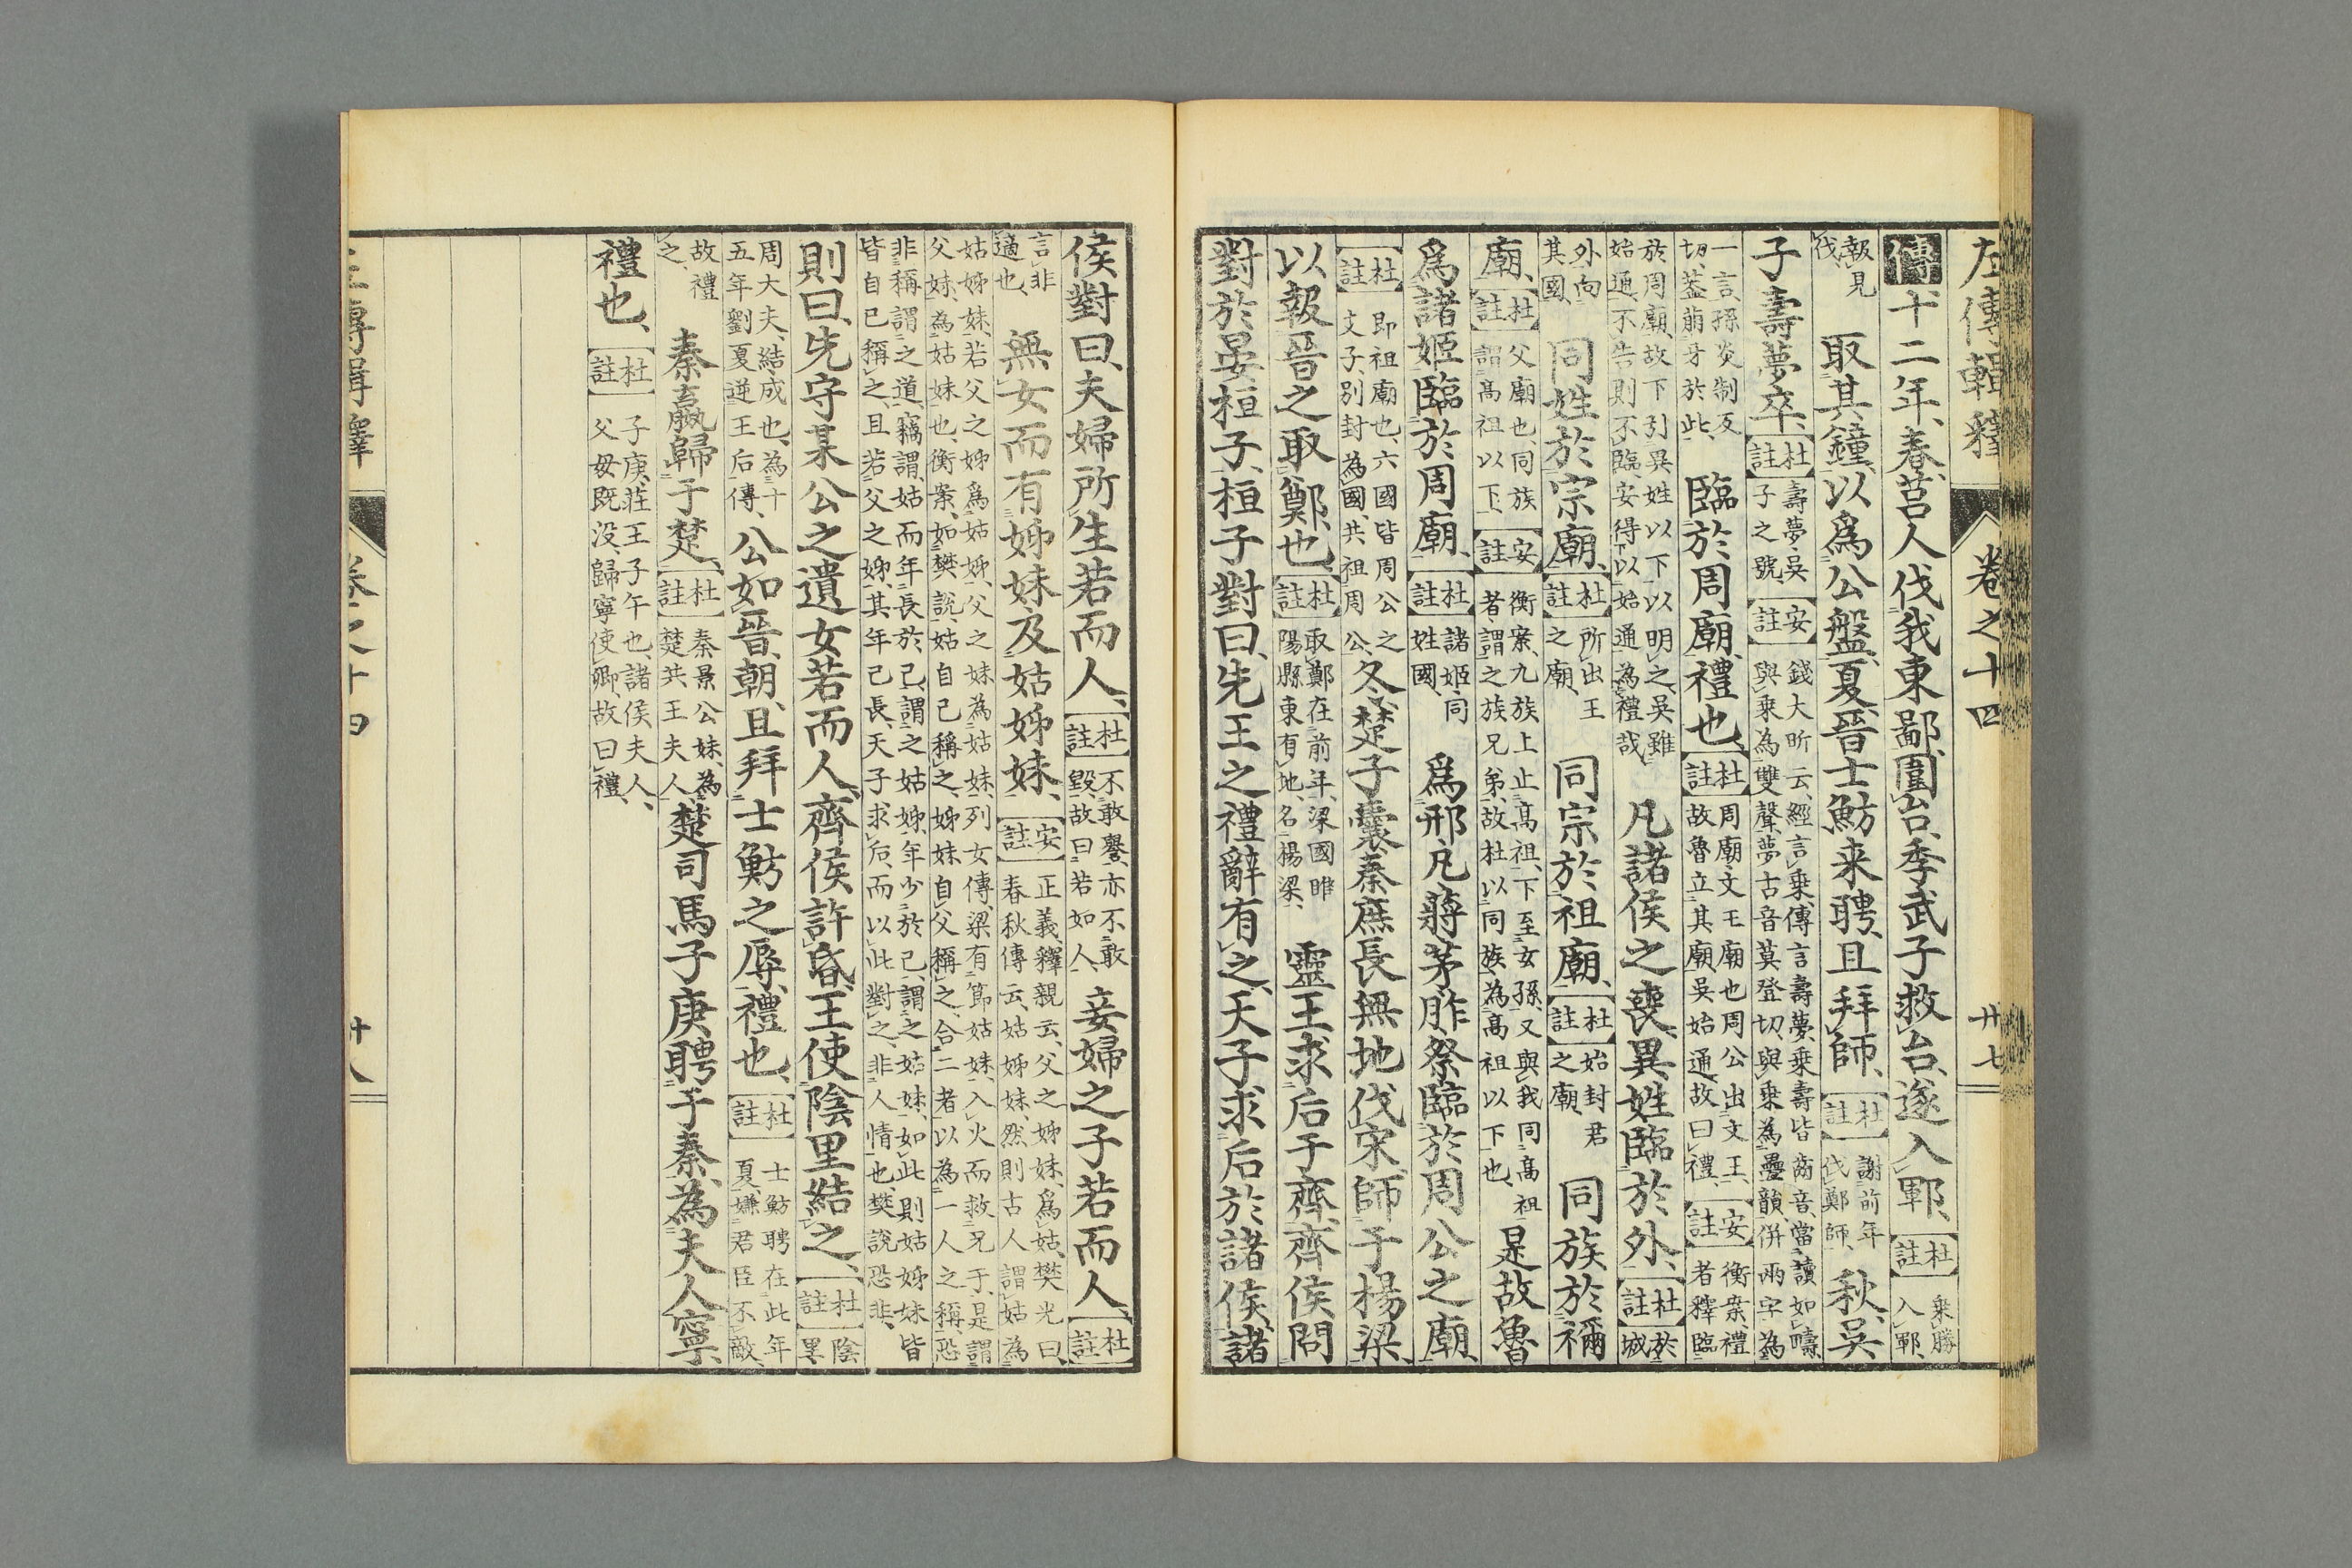 左傳輯釋 卷之十四 廿七
傳十二年、春、莒人伐我東鄙、圍台、季武子救台、遂入鄆、杜註乗勝入鄆、
報見伐 取其鐘、以爲公盤、夏、晉士魴来聘、且拜師、杜註謝前年伐鄭師、秋、吳
子壽夢卒、杜註壽夢、吳子之號、安註錢大昕云、經言乗、傳言壽夢、乗壽皆齒音、當讀如疇、與乗為雙聲、夢古音莫登切、與乗為疊韻、併兩字為
一言、孫炎制反切、葢萠牙於此、臨於周廟、禮也、杜註周廟、文王廟也、周公出文王、故魯立其廟、吳始通、故曰禮、安註衡案、禮者釋臨
於周廟、故下引異姓以下以明之、吳雖始通、不告則不臨、安得以始通為禮哉 凡諸侯之喪、異姓臨於外、杜註於城
外向其國 同姓於宗廟、杜註所出王之廟、同宗於祖廟、杜註始封君之廟、同族於禰
廟、杜註父廟也、同族謂高祖以下、安註衡案、九族上止高祖、下至女孫、又與我同高祖者、謂之族兄弟、故杜以同族為高祖以下也、是故魯
爲諸姬臨於周廟、杜註諸姬、同姓國、爲邢凡蔣茅胙祭臨於周公之廟、
杜註即祖廟也、六國皆周公之支子、別封為國、共祖周公、冬、楚子囊秦庶長無地伐宋、師于楊梁、
以報晉之取鄭也、杜註取鄭在前年、梁國睢陽縣東有地、名楊梁、靈王求后于齊、齊侯問
對於晏桓子、桓子對曰、先王之禮辭有之、天子求后於諸侯、諸
侯對曰、夫婦所生若而人、杜註不敢譽、亦不敢毀、故曰若如人、妾婦之子若而人、杜註
言非適也、無女而有姊妹及姑姊妹、安註正義、釋親云、父之姊妹、爲姑、樊光曰、春秋傳云、姑姊妹、然則古人謂姑為
姑姊妹、若父之姊爲姑姊、父之妹為姑妹、列女傳、梁有節姑妹、入火而救兄子、是謂父妹、為姑妹也、衡案、如樊說、姑自己稱之、姊妹自父稱之、合二者以為一人之稱、恐
非稱謂之道、竊謂、姑而年長於己、謂之姑姊、年少於己、謂之姑妹、如此則姑姊妹皆皆自己稱之、且若父之姊、其年已長、天子求后、而以此對之、非人情也、樊說恐非、
則曰、先守某公之遺女若而人、齊侯許昏、王使陰里結之、杜註陰里、
周大夫、結成也、為十五年劉夏逆王后傳、公如晉、朝、且拜士魴之辱、禮也、杜註士魴聘在此年夏、嫌君臣不敵、
故禮之、秦嬴歸于楚、杜註秦景公妹、為楚共王夫人、楚司馬子庚聘于秦、為夫人寧、
禮也、杜註子庚、莊王子午也、諸侯夫人、父母既没、歸寧使卿、故曰禮、
左傳輯釋 卷之十四 廿八